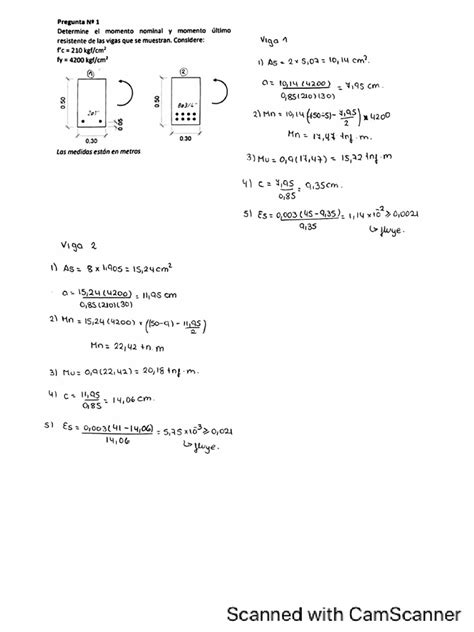 Pregunta Nº 1
Determine el momento nominal y momento último
resistente de las vigas que se muestran. Considere:
f'c = 210 kgf/cm²
fy = 4200 kgf/cm²
① ②
0.50 2ø1" 0.05 0.50 8ø3/4"
0.30 0.30
Las medidas están en metros
Viga 1
1) As = 2 x 5,07 = 10,14 cm².
a = 10,14 (4200) / 0,85(210)(30) = 7,95 cm.
2) Mn = 10,14 ((50-5) - 7,95/2) x 4200
Mn = 17,47 tnf. m.
3) Mu = 0,9(17,47) = 15,72 tnf. m
4) c = 7,95 / 0,85 = 9,35cm.
5) Es = 0,003(45-9,35) / 9,35 = 1,14 x10⁻² ≥ 0,0021
↳ fluye.
Viga 2
1) As = 8 x 1,905 = 15,24 cm²
a = 15,24 (4200) / 0,85(210)(30) = 11,95 cm
2) Mn = 15,24(4200) x ((50-9) - 11,95/2)
Mn = 22,42 tn. m
3) Mu = 0,9(22,42) = 20,18 tnf. m.
4) c = 11,95 / 0,85 = 14,06 cm.
5) Es = 0,003(41-14,06) / 14,06 = 5,75 x10⁻³ ≥ 0,021
↳ fluye.
Scanned with CamScanner